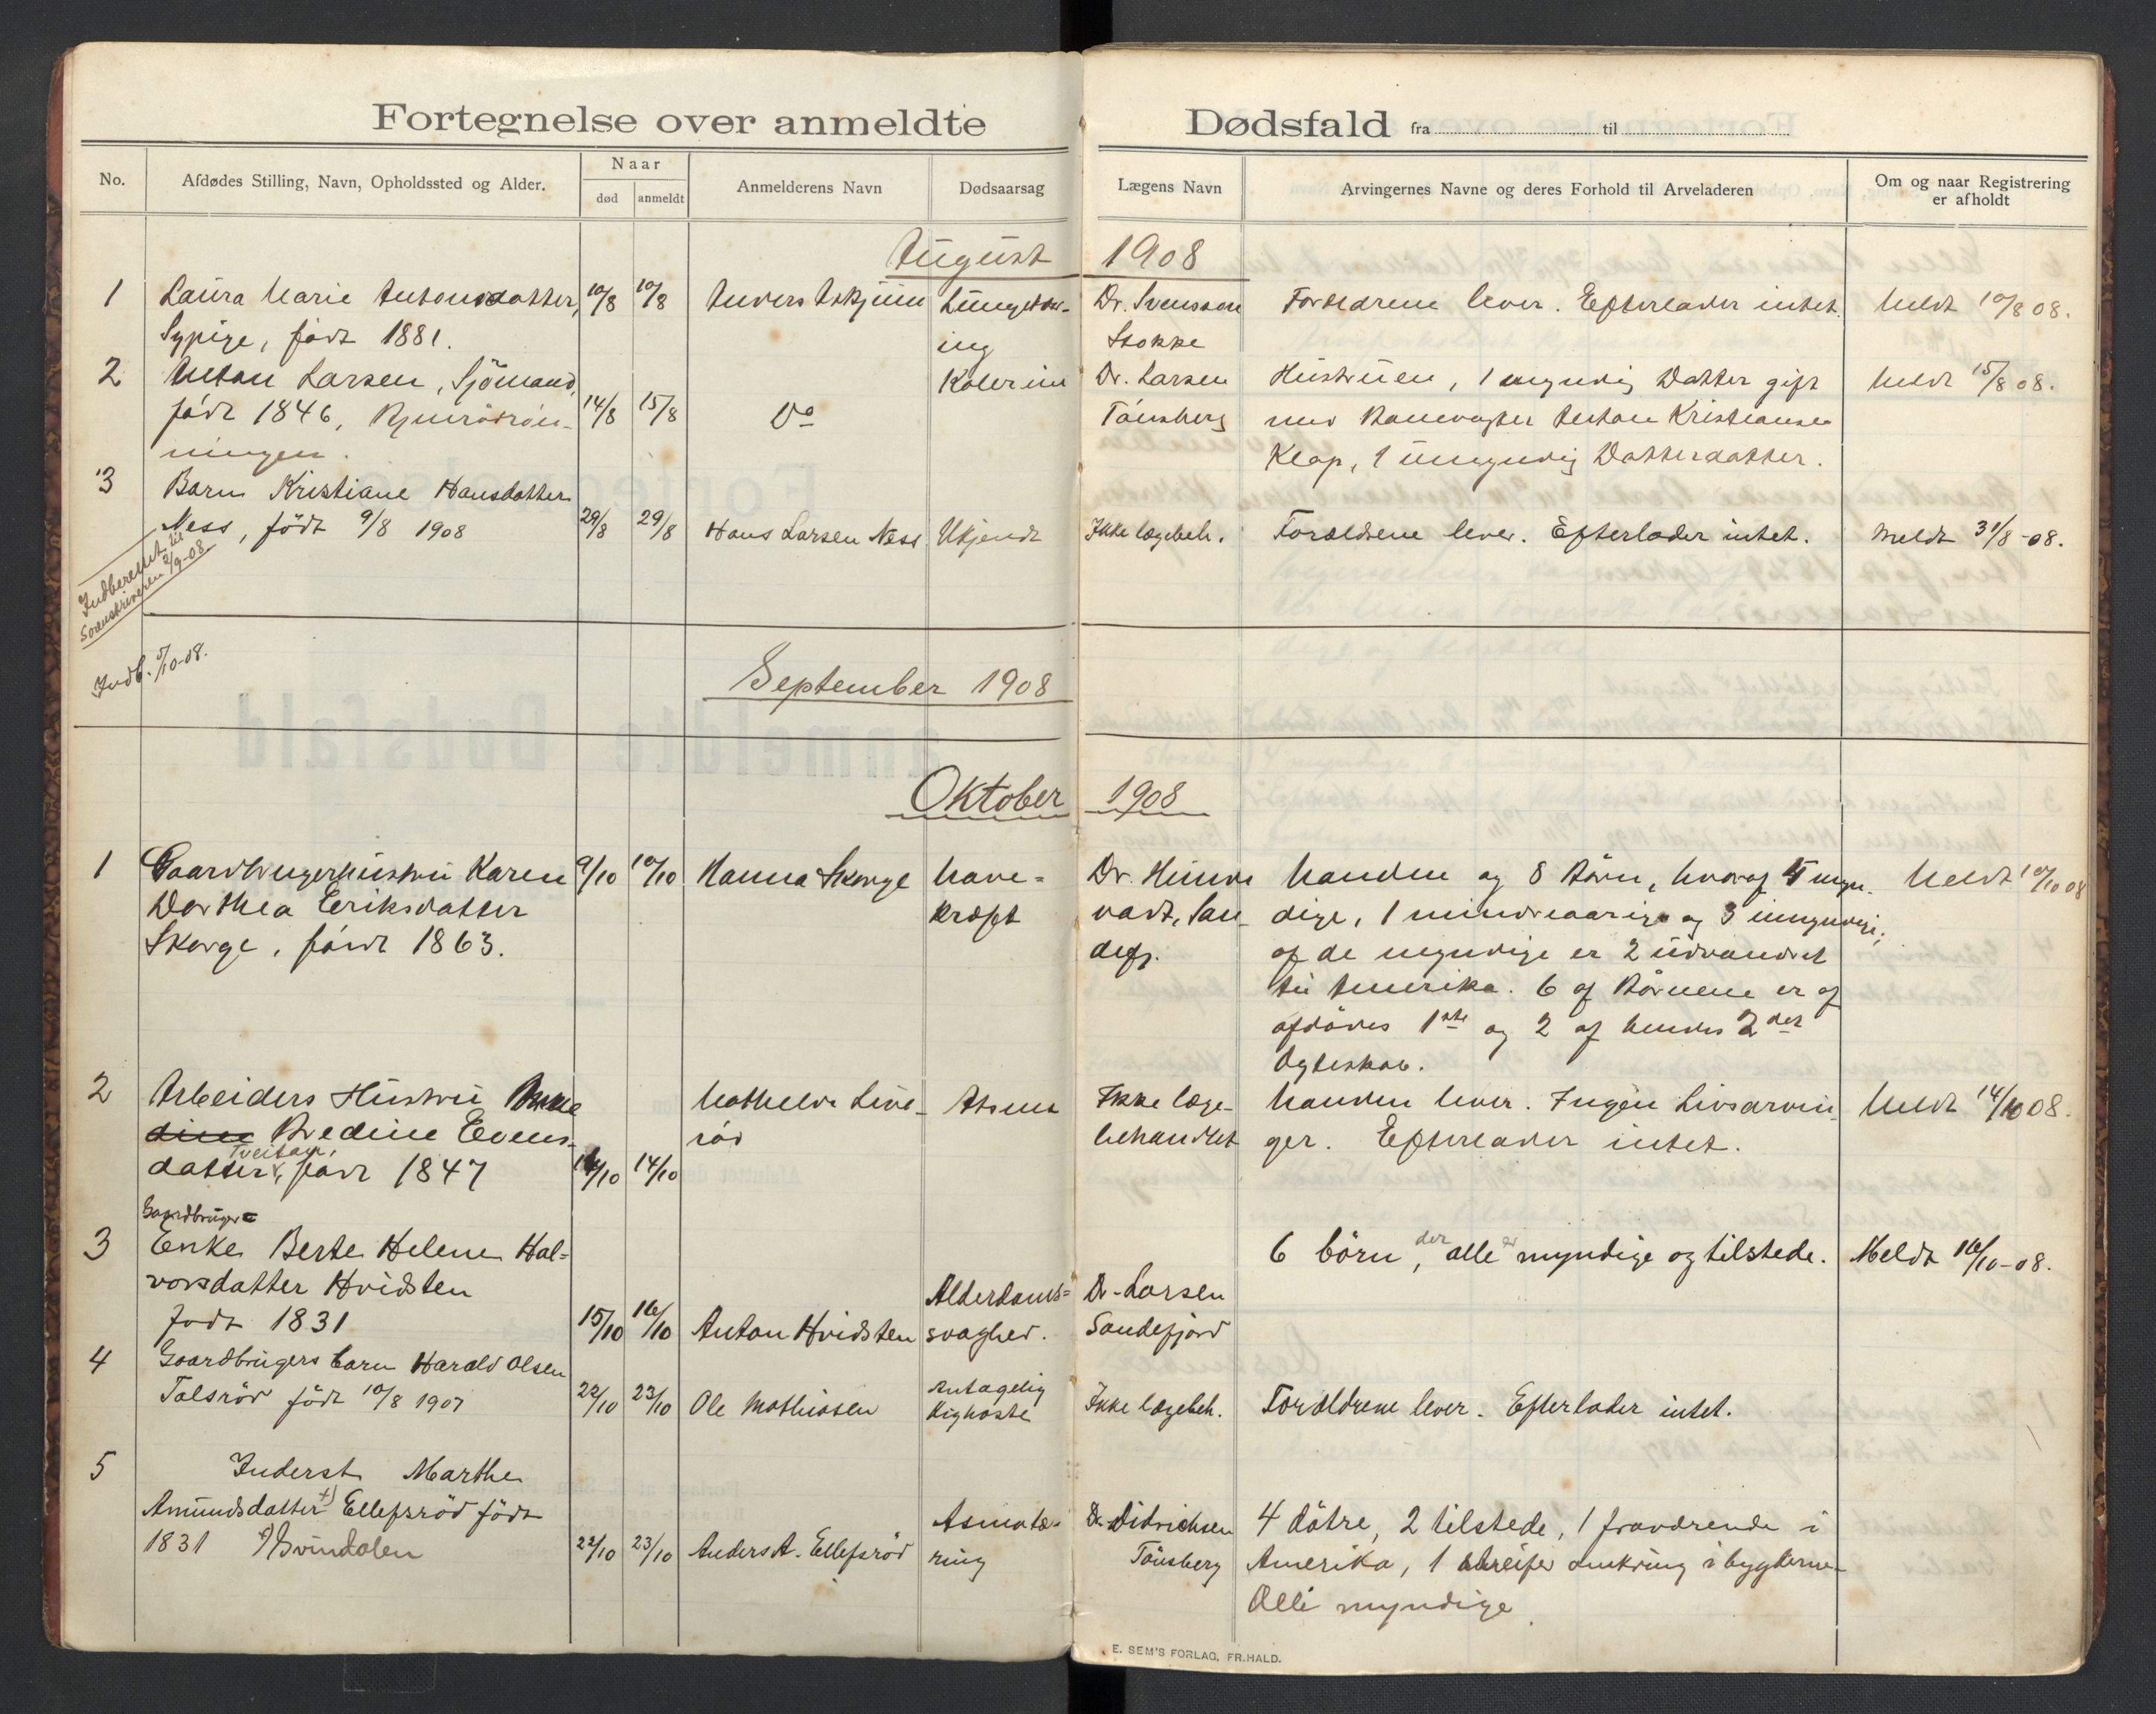 Fortegnelse over anmeldte Dødsfald fra til
No.
Afdødes Stilling, Navn, Opholdssted og Alder.
Naar
død
anmeldt
Anmelderens Navn
Dødsaarsag
Lægens Navn
Arvingernes Navne og deres Forhold til Arveladeren
Om og naar Registrering
er afholdt
August 1908
1 Laura Marie Antonsdatter, 10/8 10/8 Anders Askjum Lungetær- Dr. Svensson Forældrene lever. Efterlader intet. Meldt 10/8 08.
Sypige, født 1881. ing Stokke
2 Anton Larsen, Sjömand, Kolerine Dr. Larsen Hustruen, 1 myndig Datter gift Meldt 15/8 08.
født 1846, 14/8 15/8 Do Tönsberg med Banevogter Anton Kristiansen
ningen. Klop, 1 umyndig Datterdatter.
3 Barn Kristiane Hansdatter
Ness, født 9/8 1908 29/8 29/8 Hans Larsen Ness Ukjendt Ikke lægebeh. Forældrene lever. Efterlader intet. Meldt 31/8-08.
Indberettet til
Sorenskriveren 2/9-08
Indb. 5/10-08.
September 1908
Oktober 1908
1 Gaardbrugerhustru Karen 9/10 10/10 Hanna Skorge Mave- Dr. Manden og 8 Börn, hvoraf 4 myn- Meldt 10/10 08
Dorthea Eriksdatter kræft San- dige, 1 mindreaarige og 3 umyndige;
Skorge, født 1863. defj. af de myndige er 2 udvandret
til Amerika. 6 af Börnene er af
afdödes 1ste og 2 af hendes 2det
Ægteskab.
2 Arbeiders Hustru Mathilde Line- Atsma Ikke læge- Manden lever. Ingen Livsarvin- Meldt 14/10 08.
Bredine Evens- röd behandlet ger. Efterlader intet.
Tveitan,
datter, født 1847 14/10 14/10
Gaardbruger-
3 Enke Berte Helene Hal- 6 börn, der alle er myndige og tilstede. Meldt 16/10-08.
vorsdatter Hvidsten Alderdoms- Dr. Larsen
Født 1831 15/10 16/10 Anton Hvidsten svaghed. Sandefjord
4 Gaardbrugers barn Harald Olsen
Talsröd født 10/8 1907 22/10 23/10 Ole Mathiasen Antagelig Ikke lægebeh. Forældrene lever. Efterlader intet.
Kighoste
5 Inderst Marthe
Amundsdatter +) Ellefsröd födt Dr. Didrichsen 4 dötre, 2 tilstede, 1 fraværende i
1831 +) Svindalen 22/10 23/10 Anders A. Ellefsröd ring Tönsberg Amerika, 1 streifer omkring i bygderne.
Alle myndige
E. SEM'S FORLAG, FR.HALD.